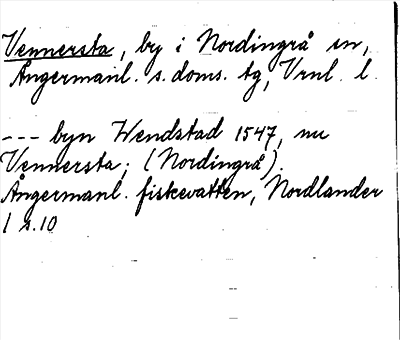 Vennersta, by i Nordingrå sn,
Ångermanl. s. doms. tg, Vrnl. l.
--- byn Wendstad 1547, nu
Vennersta; (Nordingrå).
Ångermanl. fiskevatten, Nordlander
1 s. 10